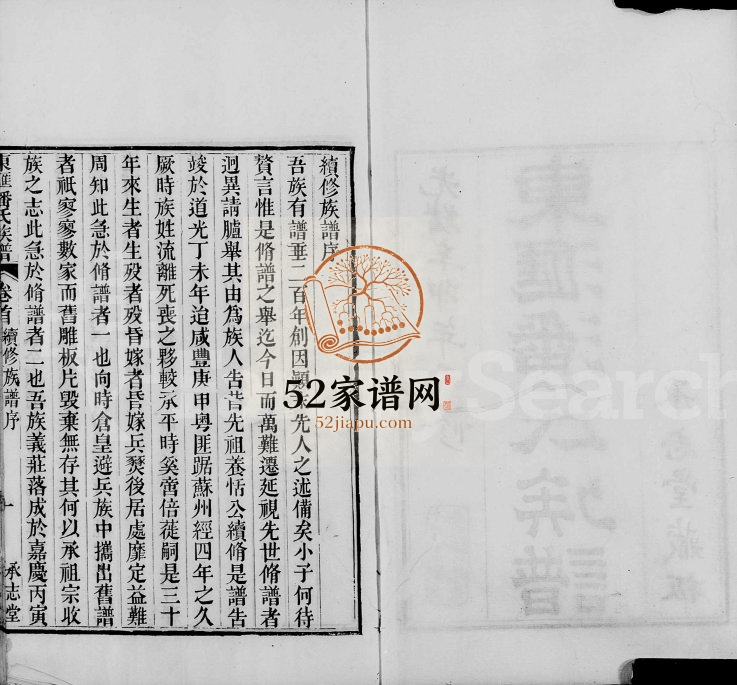 續修族譜序
吾族有譜垂二百年創因顛 先人之述備矣小子何待
贅言惟是脩譜之舉迄今日而萬難遷延視先世脩譜者
迥異請臚舉其由爲族人告昔先祖養恬公續脩是譜告
竣於道光丁未年迨咸豐庚申粵匪踞蘇州經四年之久
厥時族姓流離死喪之夥較承平時奚啻倍蓰嗣是三十
年來生者生歿者歿昏嫁者昏嫁兵燹後居處靡定益難
周知此急於脩譜者一也向時倉皇避兵族中攜出舊譜
者祇寥寥數家而舊雕板片毀棄無存其何以承祖宗收
族之志此急於脩譜者二也吾族義莊落成於嘉慶丙寅
東匯潘氏族譜 卷首 續修族譜序 一 承志堂
52家谱网
52jiapu.com
Search
東匯潘氏族譜
堂藏板